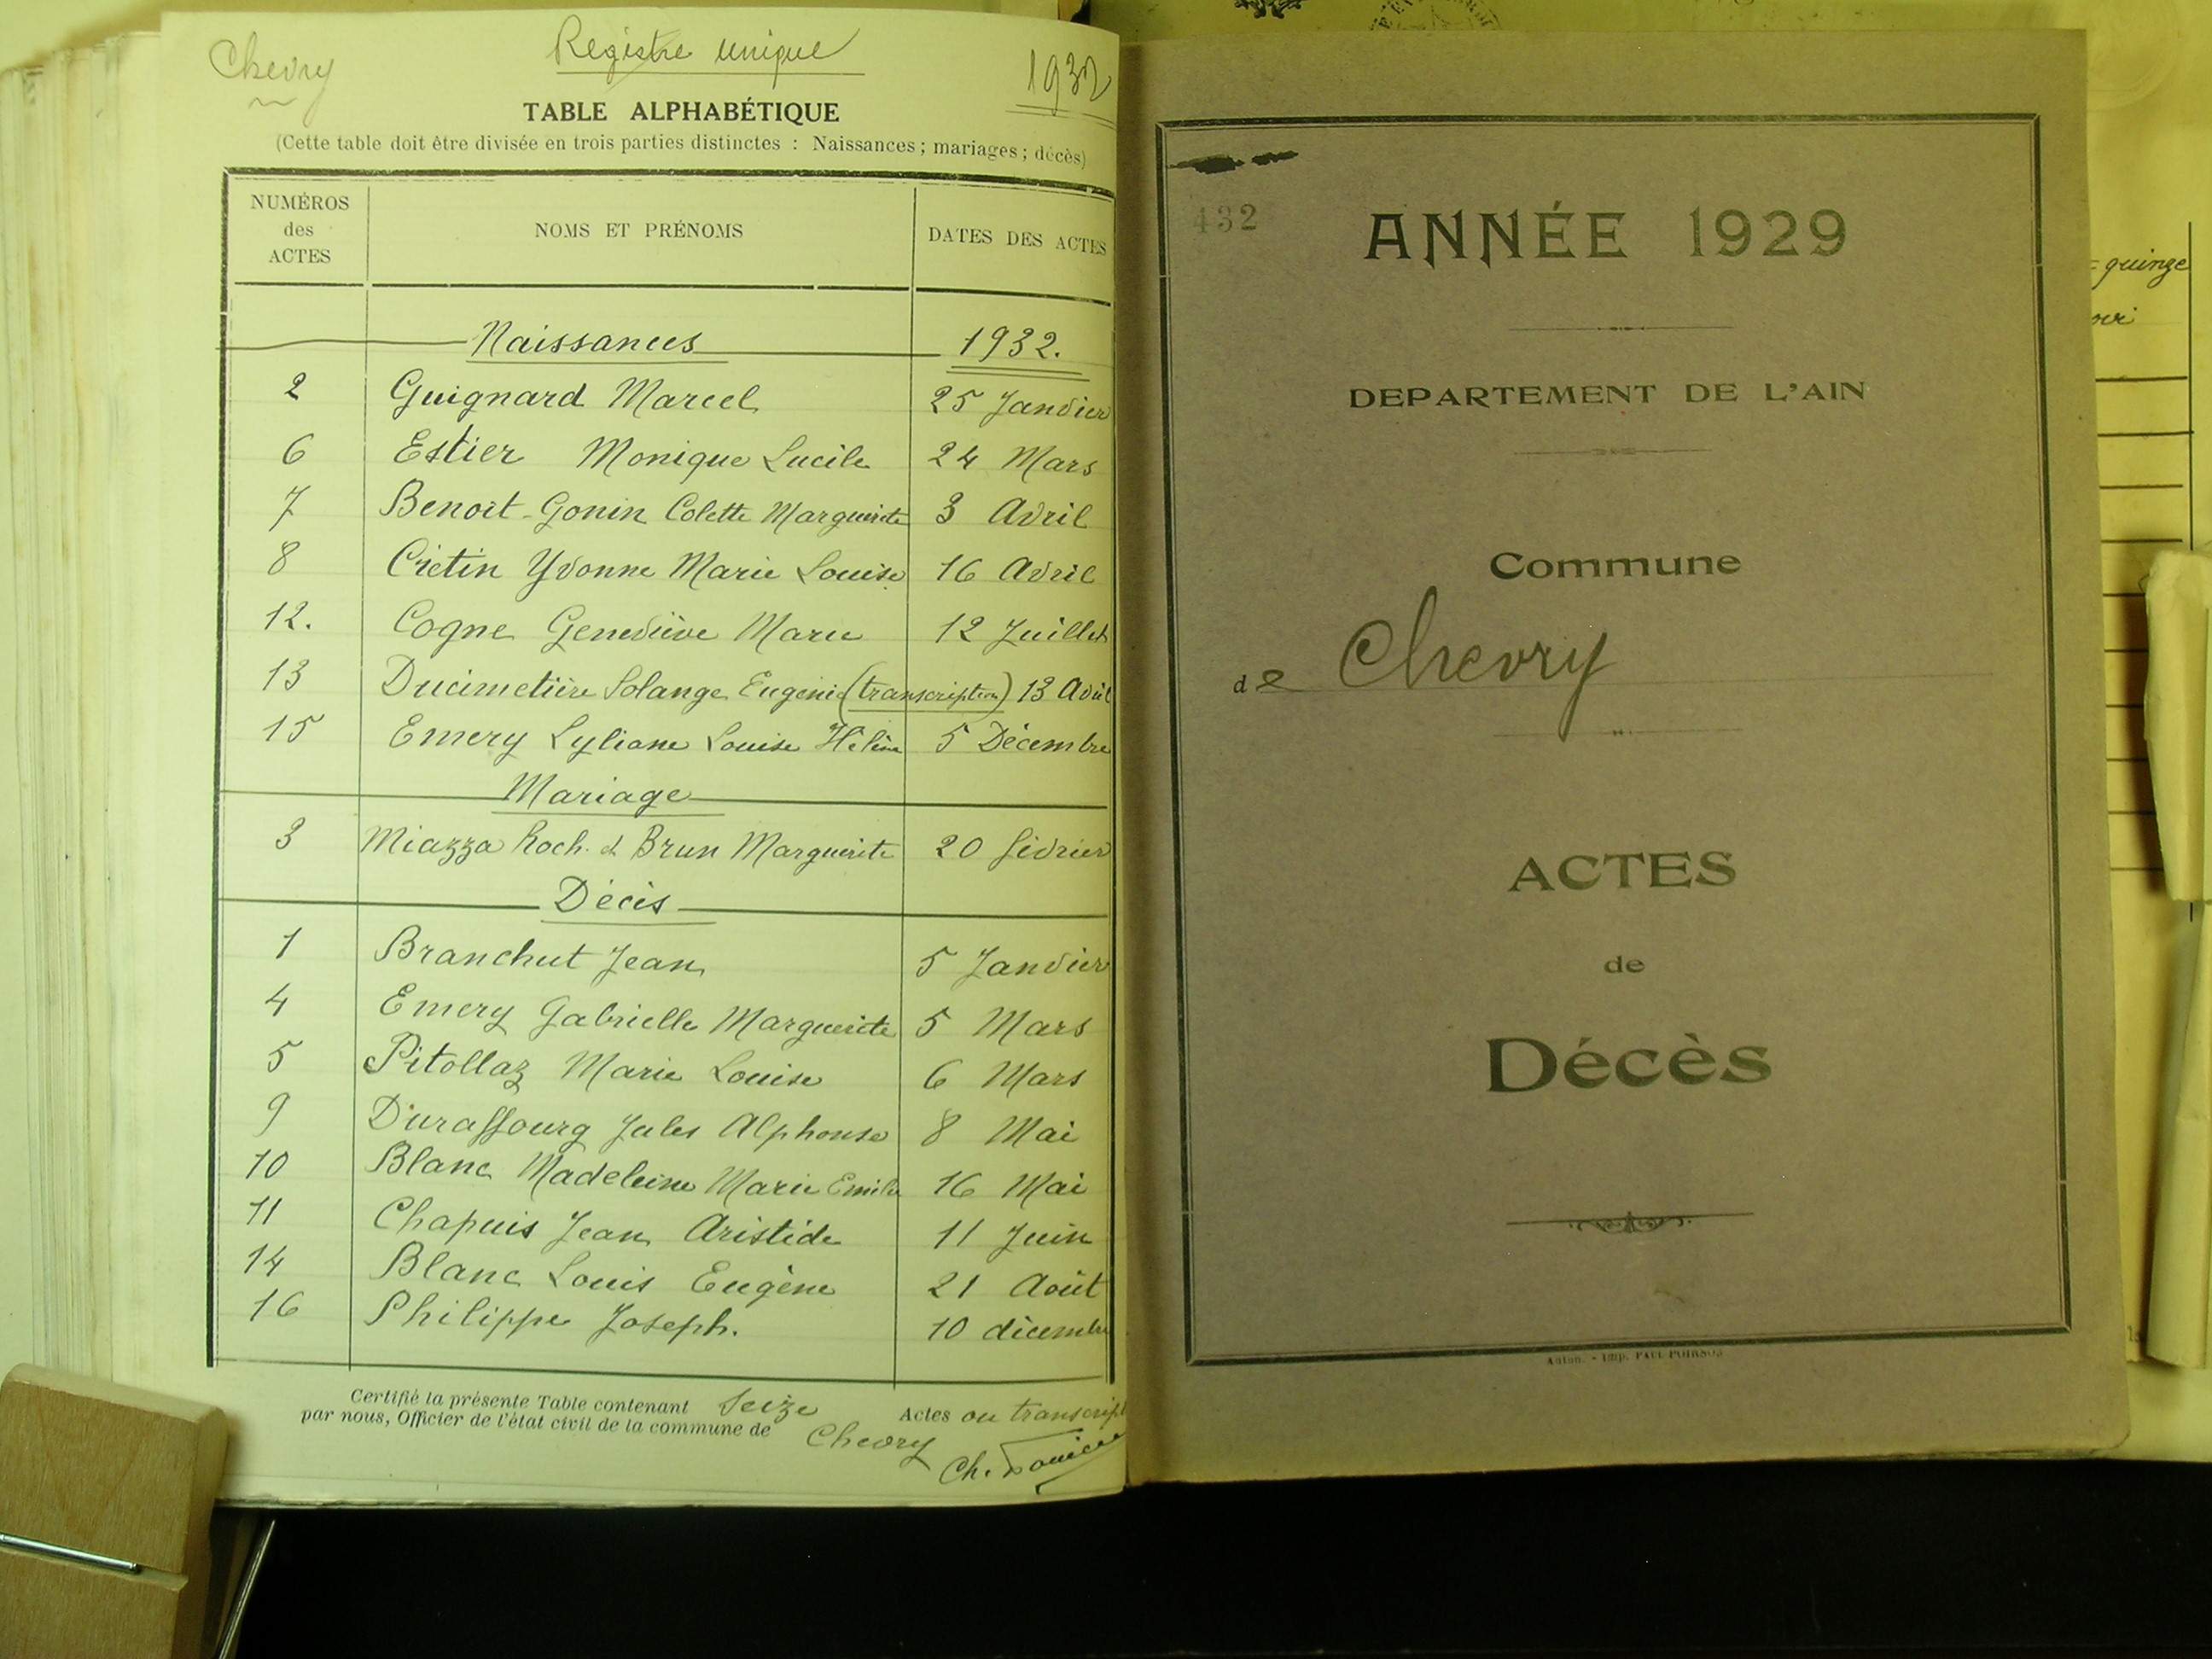 Chevry
Registre unique
1932
TABLE ALPHABÉTIQUE
(Cette table doit être divisée en trois parties distinctes : Naissances ; mariages ; décès)
NUMÉROS des ACTES NOMS ET PRÉNOMS DATES DES ACTES
Naissances 1932.
2 Guignard Marcel 25 Janvier
6 Estier Monique Lucile 24 Mars
7 Benoit-Gonin Colette Marguerite 3 Avril
8 Crétin Yvonne Marie Louise 16 Avril
12. Cogne Geneviève Marie 12 Juillet
13 Ducimetière Solange Eugénie (transcription) 13 Août
15 Emery Lyliane Louise Hélène 5 Décembre
Mariage
3 Miazza Roch. et Brun Marguerite 20 février
Décès
1 Branchut Jean 5 Janvier
4 Emery Gabrielle Marguerite 5 Mars
5 Pitollaz Marie Louise 6 Mars
9 Duraffourg Jules Alphonse 8 Mai
10 Blanc Madeleine Marie Emilie 16 Mai
11 Chapuis Jean Aristide 11 Juin
14 Blanc Louis Eugène 21 Août
16 Philippe Joseph. 10 décembre
Certifié la présente Table contenant Seize Actes ou transcript
par nous, Officier de l'état civil de la commune de Chevry
Ch.
432
ANNÉE 1929
DEPARTEMENT DE L'AIN
Commune
de Chevry
ACTES
de
Décès
Autun. - Imp. PAUL POIRSON
quinze